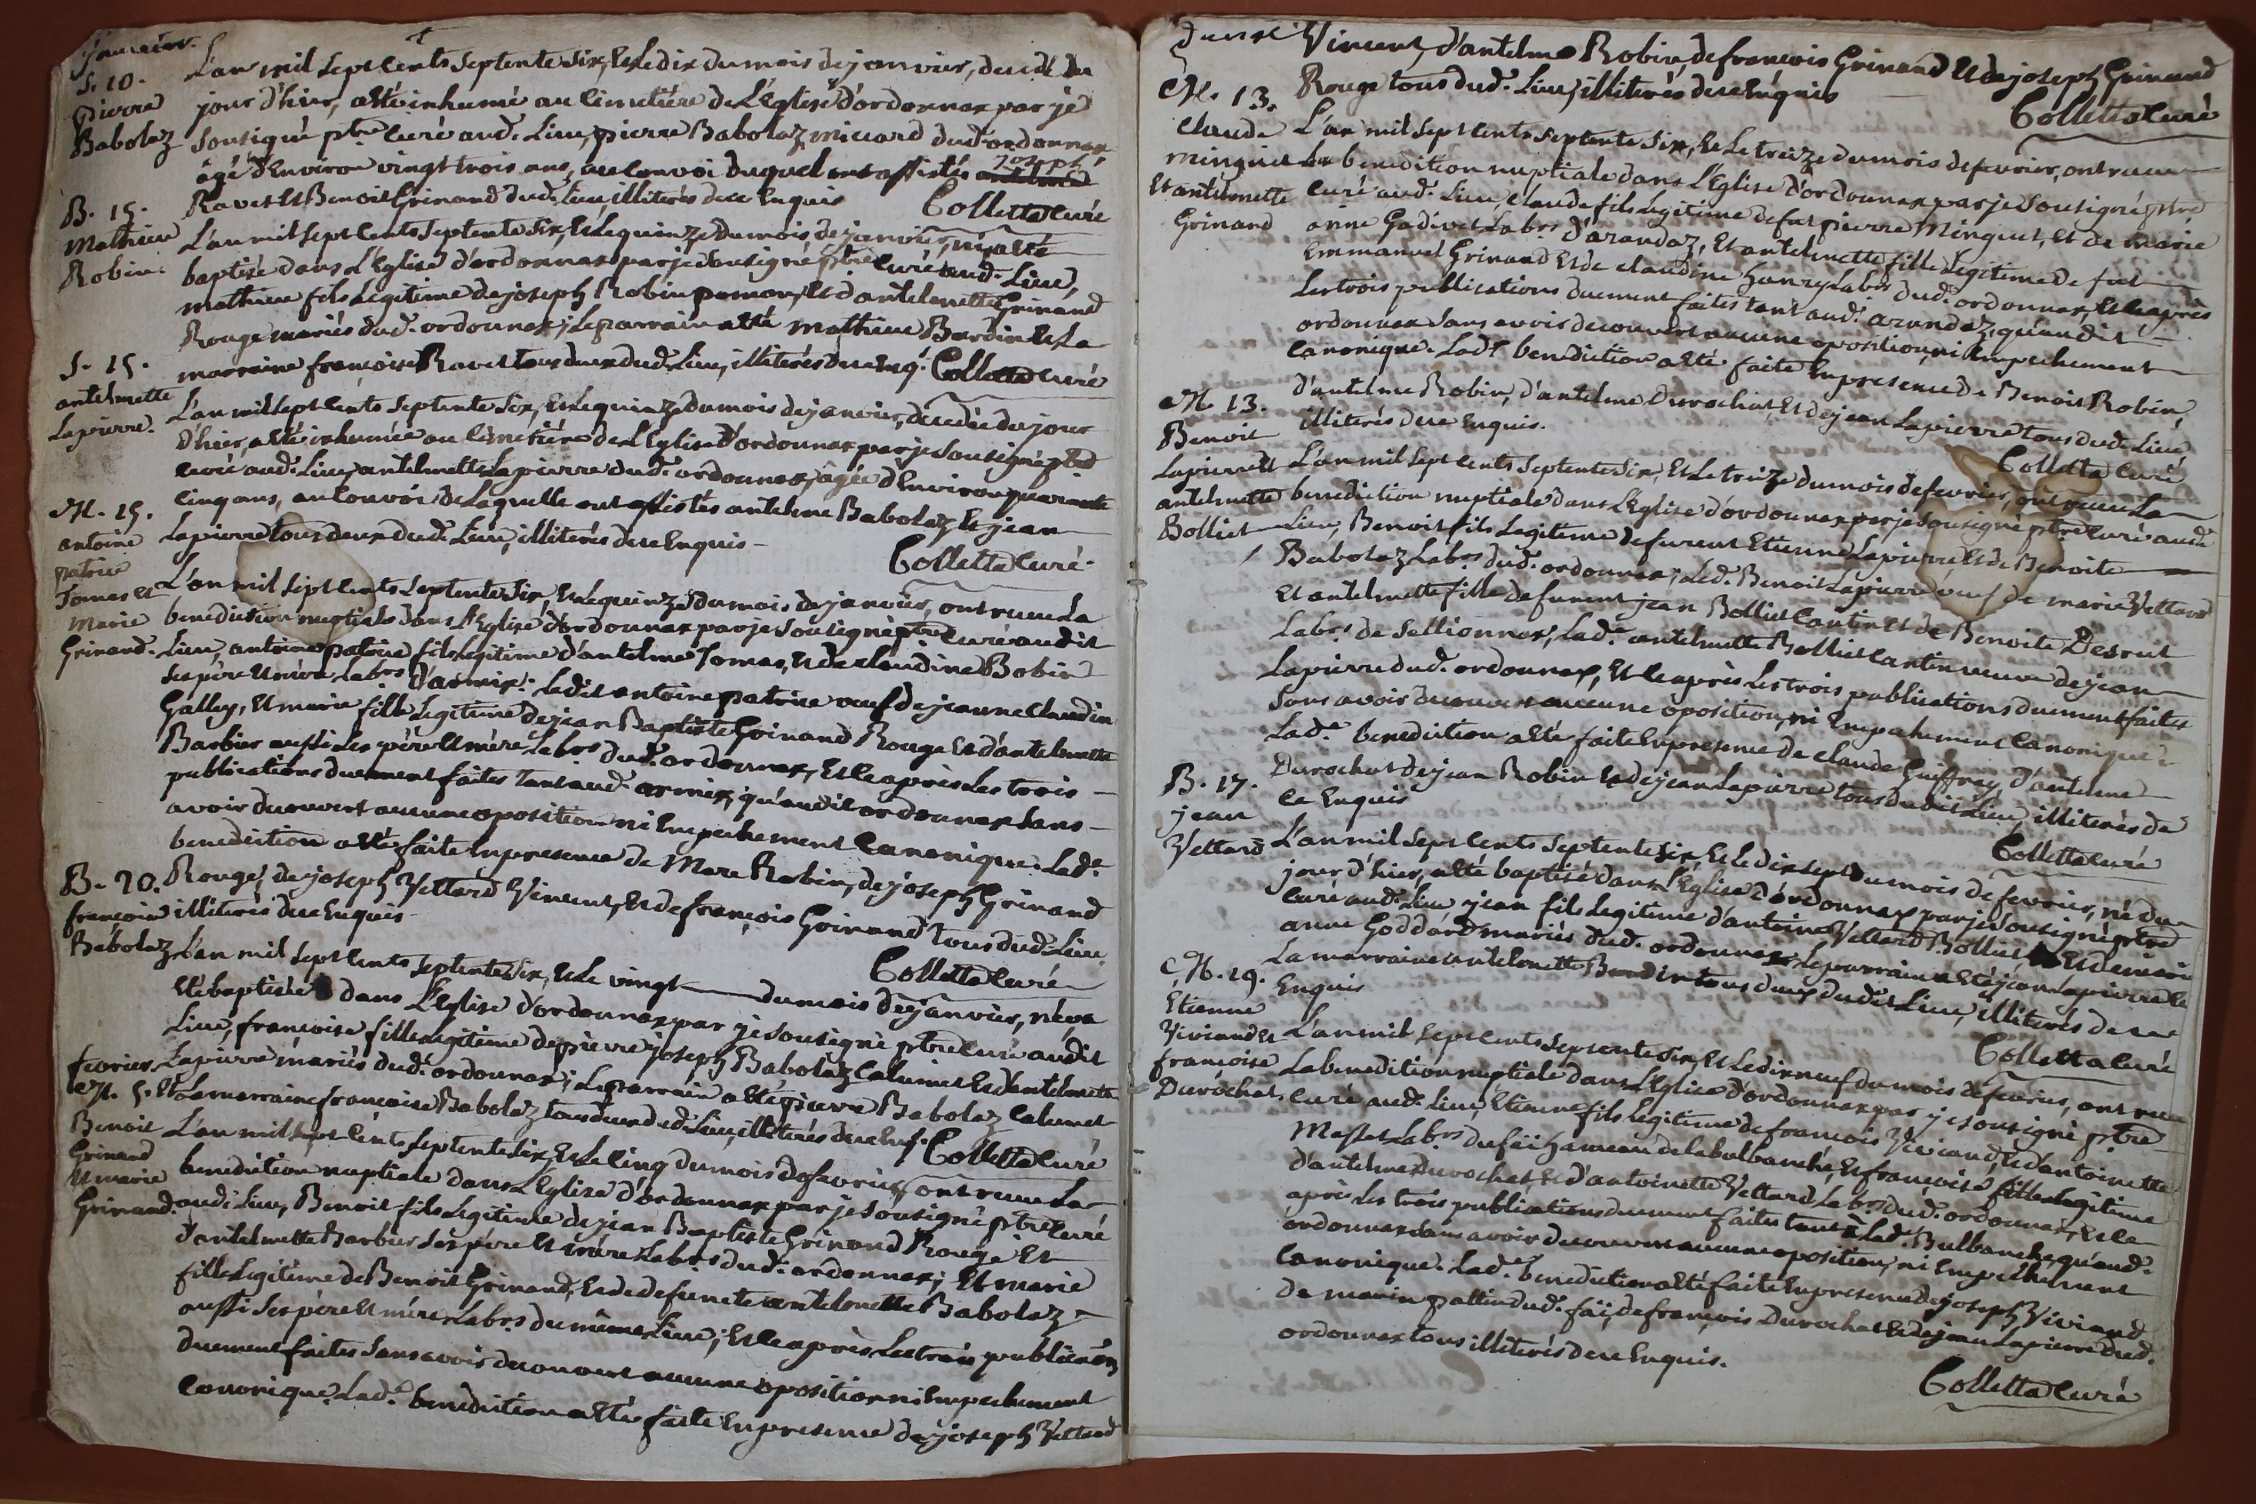 janvier.
1
S. 10.
pierre
Babolaz
L'an mil sept cents septente six, et le dix du mois de janvier, decedé du
jour d'hier, a été inhumé au cimetière de L'Eglise d'ordonnax par je
soussigné ptre curé aud. Lieu, pierre Babolaz miccard dud. ordonnax
âgé d'Environ vingt trois ans, au convoi duquel ont assistés joseph
Ravet et Benoit Grinand dud. Lieu, illiterés de ce Enquis
Colletta curé
B. 15.
Mathieu
Robin.
L'an mil sept cents septente six, et le quinze du mois de janvier, né, a été
baptisé dans L'Eglise d'ordonnax par je soussigné ptre curé aud. Lieu,
mathieu fils Legitime de joseph Robin et d'antelmette Grinand
Rouge mariés dud. ordonnax; Le parrain a été mathieu Bardin et La
marraine françoise Ravet tous deux dud. Lieu, illiterés de ce Enq. Colletta curé
S. 15.
antelmette
Lapierre.
L'an mil sept cents septente six, et le quinze du mois de janvier, decedée du jour
d'hier, a été inhumée au cimetière de L'Eglise d'ordonnax par je soussigné ptre
curé aud. Lieu, antelmette Lapierre dud. ordonnax, âgée d'Environ quarante
cinq ans, au convoi de Laquelle ont assistés antelme Babolaz et jean
Lapierre tous deux dud. Lieu, illiterés de ce Enquis
Colletta curé.
M. 15.
antoine
patrice
Tomas et
marie
Grinand.
L'an mil sept cents septente six, et le quinze du mois de janvier, ont recu La
benediction nuptiale dans L'Eglise d'ordonnax par je soussigné ptre curé audit
Lieu, antoine patrice fils Legitime d'antelme Tomas, et de claudine Bobin
ses père et mère, Labrs d'armix: Ledit antoine patrice veuf de jeanne claudin
Gallay, et marie fille Legitime de jean Baptiste Grinand Rouge et d'antelmette
Barbier aussi ses père et mère Labrs dud. ordonnax, et ce après Les trois
publications duement faites tant aud. armix, qu'audit ordonnax sans
avoir decouvert aucune oposition ni Empechement canonique. Lade
benediction a été faite En presence de Marc Robin, de joseph Grinand
Rouge, de joseph Vettard Vincent, et de françois Grinand tous dud. Lieu
illiterés de ce Enquis
Colletta curé
B. 20.
françoise
Babolaz
L'an mil sept cents septente six, et le vingt du mois de janvier, née a
été baptisée dans L'Eglise d'ordonnax par je soussigné ptre curé audit
Lieu, françoise fille Legitime de pierre joseph Babolaz calumet et d'antelmette
Lapierre mariés dud. ordonnax; Le parrain a été pierre Babolaz calumet
et La marraine françoise Babolaz tous deux dud. Lieu, illiterés de ce Enq. Colletta curé
fevrier.
M. 5.
Benoit
Grinand
et marie
Grinand.
L'an mil sept cents septente six, et le cinq du mois de fevrier, ont recu La
benediction nuptiale dans L'Eglise d'ordonnax par je soussigné ptre curé
aud. Lieu, Benoit fils Legitime de jean Baptiste Grinand Rouge et
d'antelmette Barbier ses père et mère Labrs dud. ordonnax; et marie
fille Legitime de Benoit Grinand, et de defuncte antelmette Babolaz
aussi ses père et mère Labrs du même Lieu; et ce après Les trois publicaons
duement faites sans avoir decouvert aucune oposition ni Empechement
canonique. Lade benediction a été faite En presence de joseph Vettard
Vincent, d'antelme Robin, de françois Grinand et de joseph Grinand
Rouge tous dud. Lieu, illiterés de ce Enquis
Colletta curé
M. 13.
Claude
Minguet
et antelmette
Grinand
L'an mil sept cents septente six, et Le treize du mois de fevrier, ont recu
La benediction nuptiale dans L'Eglise d'ordonnax par je soussigné ptre
curé aud. Lieu, claude fils Legitime de fut pierre Minguet, et de marie
anne Gadivet Labrs d'arandaz, et antelmette fille Legitime de fut
Emmanuel Grinand et de claudine Labrs dud. ordonnax, et ce après
Les trois publications duement faites tant aud. arandaz, qu'audit
ordonnax sans avoir decouvert aucune oposition, ni Empechement
canonique. Lade benediction a été faite En presence de Benoit Robin,
d'antelme Robin, d'antelme Durochat, et de jean Lapierre tous dud. Lieu,
illiterés de ce Enquis.
Colletta curé
M. 13.
Benoit
Lapierre et
antelmette
Bolliet
L'an mil sept cents septente six, et Le treize du mois de fevrier, ont recu La
benediction nuptiale dans L'Eglise d'ordonnax par je soussigné ptre curé aud.
Lieu, Benoit fils Legitime de furent Etienne Lapierre et de Benoite
Babolaz Labrs dud. ordonnax; Led. Benoit Lapierre veuf de marie Vettard
et antelmette fille de furent jean Bolliet Cantin et de Benoite Desrut
Labrs de Sellionnax; Lade antelmette Bolliet Cantin veuve de jean
Lapierre dud. ordonnax, et ce après Les trois publications duement faites
sans avoir decouvert aucune oposition, ni Empechement canonique.
Lade benediction a été faite En presence de claude Guiffrey, d'antelme
Durochat de jean Robin et de jean Lapierre tous dudit Lieu, illiterés de
ce Enquis
Colletta curé
B. 17.
jean
Vettard
L'an mil sept cents septente six, et Le dix sept du mois de fevrier, né du
jour d'hier, a été baptisé dans L'Eglise d'ordonnax par je soussigné ptre
curé aud. Lieu, jean fils Legitime d'antoine Vettard Bolliet et de marie
anne Goddard mariés dud. ordonnax; Le parrain a été jean Lapierre et
La marraine antelmette Bardin tous deux dudit Lieu, illiterés de ce
Enquis
Colletta curé
M. 19.
Etienne
Viviand et
françoise
Durochat.
L'an mil sept cents septente six, et Le dix neuf du mois de fevrier, ont recu
La benediction nuptiale dans L'Eglise d'ordonnax par je soussigné ptre
curé aud. Lieu, Etienne fils Legitime de françois Viviand, et d'antoinette
Masset Labrs du faii hameau de la balbanche, et françoise fille Legitime
d'antelme Durochat, et d'antoinette Vettard Labrs dud. ordonnax, et ce
après Les trois publications duement faites tant à Lad. Bulbanche, qu'aud.
ordonnax sans avoir decouvert aucune oposition, ni Empechement
canonique. Lade benediction a été faite En presence de joseph Viviand
de marin pattin dud. faii, de françois Durochat et de jean Lapierre dud.
ordonnax tous illiterés de ce Enquis.
Colletta curé